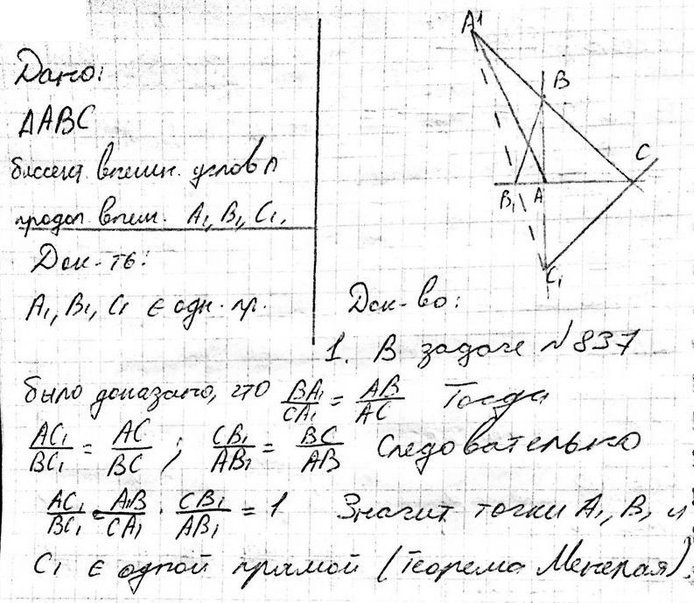 Дано:
ΔABC
биссект. внешн. углов Δ
продол внеш. A₁, B₁, C₁.
Док-ть:
A₁, B₁, C₁ ∈ одн. пр.
A1
B
C
B₁ A
C₁
Док-во:
1. В задаче №837
было доказано, что BA₁/CA₁ = AB/AC Тогда
AC₁/BC₁ = AC/BC ; CB₁/AB₁ = BC/AB Следовательно
AC₁/BC₁ · A₁B/CA₁ · CB₁/AB₁ = 1 Значит точки A₁, B₁ и
C₁ ∈ одной прямой (Теорема Менелая).